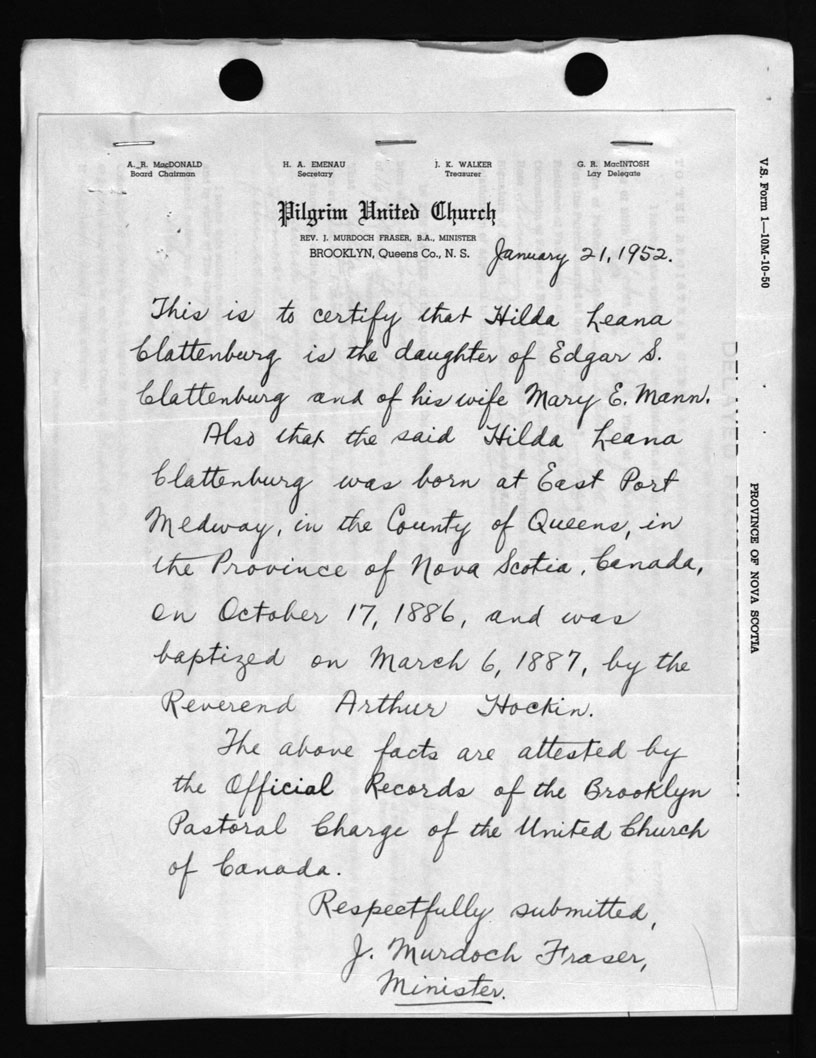 A. R. MacDONALD
Board Chairman
H. A. EMENAU
Secretary
J. K. WALKER
Treasurer
G. R. MacINTOSH
Lay Delegate
Pilgrim United Church
REV. J. MURDOCH FRASER, B.A., MINISTER
BROOKLYN, Queens Co., N. S.
January 21, 1952.
This is to certify that Hilda Leana
Clattenburg is the daughter of Edgar S.
Clattenburg and of his wife Mary E. Mann.
Also that the said Hilda Leana
Clattenburg was born at East Port
Medway, in the County of Queens, in
the Province of Nova Scotia, Canada,
on October 17, 1886, and was
baptized on March 6, 1887, by the
Reverend Arthur Hockin.
The above facts are attested by
the Official Records of the Brooklyn
Pastoral Charge of the United Church
of Canada.
Respectfully submitted,
J. Murdoch Fraser,
Minister.
V.S. Form 1—10M-10-50
PROVINCE OF NOVA SCOTIA